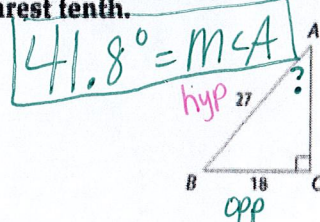 arest tenth.
41.8° = m<A
A
?
hyp 27
B 18 C
opp